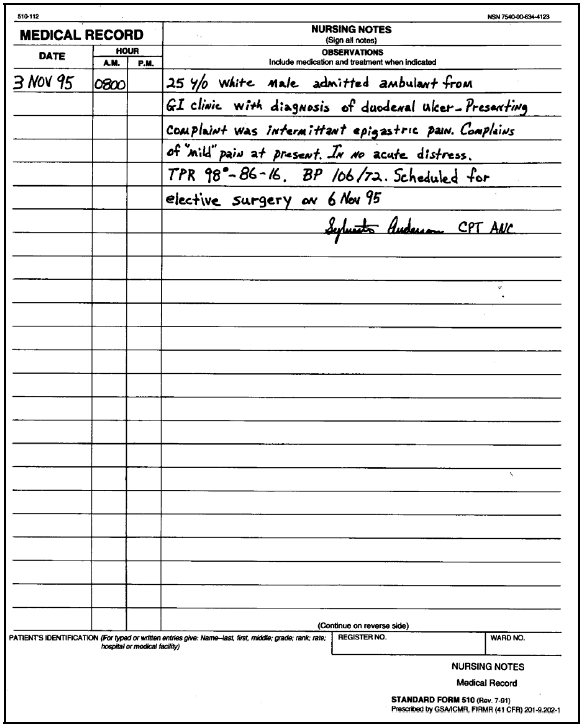 510-112
NSN 7540-00-634-4123
MEDICAL RECORD
NURSING NOTES
(Sign all notes)
DATE
HOUR
A.M.
P.M.
OBSERVATIONS
Include medication and treatment when indicated
3 NOV 95 0800 25 y/o white male admitted ambulant from
GI clinic with diagnosis of duodenal ulcer - Presenting
complaint was intermittant epigastric pain. Complains
of "mild" pain at present. In no acute distress.
TPR 98°-86-16. BP 106/72. Scheduled for
elective surgery on 6 Nov 95
Anderson CPT ANC
(Continue on reverse side)
PATIENT'S IDENTIFICATION (For typed or written entries give: Name—last, first, middle; grade; rank; rate;
hospital or medical facility)
REGISTER NO.
WARD NO.
NURSING NOTES
Medical Record
STANDARD FORM 510 (Rev. 7-91)
Prescribed by GSA/ICMR, FIRMR (41 CFR) 201-9.202-1